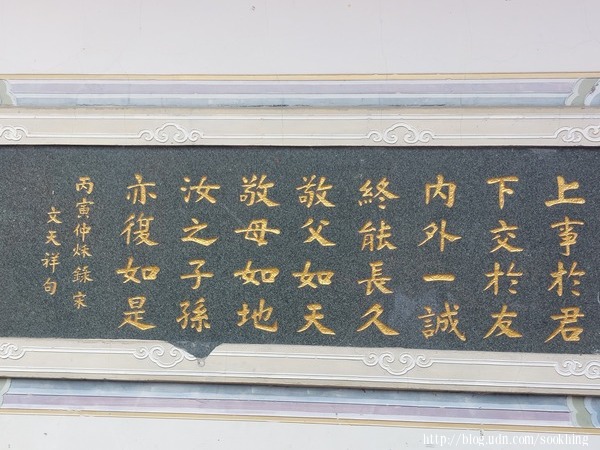 上事於君
下交於友
内外一誠
終能長久
敬父如天
敬母如地
汝之子孫
亦復如是
丙寅仲炑錄宋
文天祥句
http://blog.udn.com/sookhing